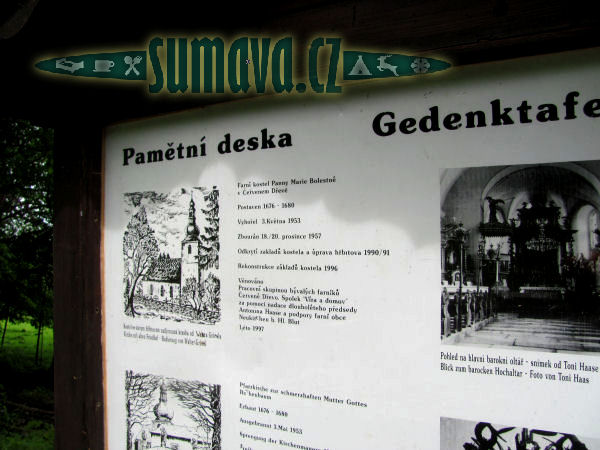 sumava.cz
Pamětní deska
Gedenktafe
Farní kostel Panny Marie Bolestné
v Červeném Dřevě
Postaven 1676 - 1680
Vyhořel 3.Května 1953
Zbourán 18./20. prosince 1957
Odkrytí základů kostela a úprava hřbitova 1990/91
Rekonstrukce základů kostela 1996
Věnováno
Pracovní skupinou bývalých farníků
Červené Dřevo. Spolek "Víra a domov"
za pomoci dlouholetého předsedy
Antonína Haase a podpory farní obce
Neukirchen b. Hl. Blut
Léto 1997
Pohled na hlavní barokní oltář - snímek od Toni Haase
Blick zum barocken Hochaltar - Foto von Toni Haas
Pfarrkirche zur schmerzhaften Mutter Gottes
Erbaut 1676 - 1680
Ausgebrannt 3.Mai 1953
Sprengung der Kirchenmauern